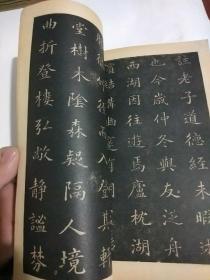 註老子道德經未暇
也今歲仲冬與友泛舟
西湖因往遊焉廬枕湖
結構幽入則軒
堂樹木陰森疑隔人境
曲折登樓弘敞靜謐棼